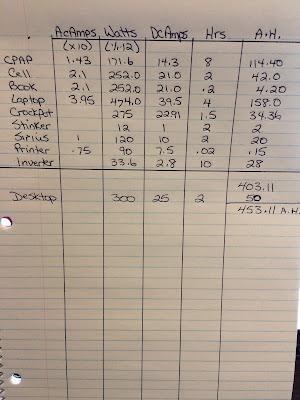 AcAmps Watts DCAmps Hrs A.H.
(x10) (%12)
CPAP 1.43 171.6 14.3 8 114.40
Cell 2.1 252.0 21.0 2 42.0
Book 2.1 252.0 21.0 .2 4.20
Laptop 3.95 474.0 39.5 4 158.0
Crockpot 275 22.91 1.5 34.36
Stinker 12 1 2 2
Sirius 1 120 10 2 20
Printer .75 90 7.5 .02 .15
Inverter 33.6 2.8 10 28
403.11
Desktop 300 25 2 50
453.11 A.H.